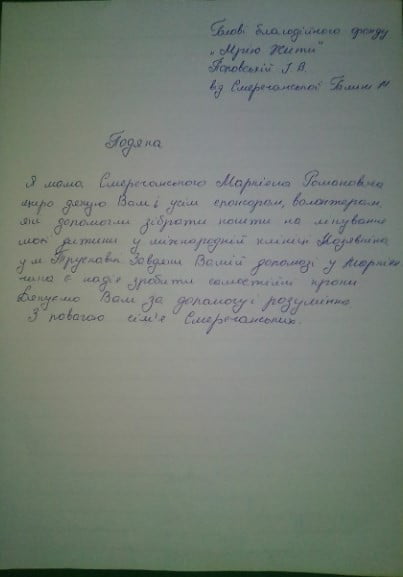 Голові благодійного фонду
„Мрію Жити"
Поповській І. В.
від Смеречанської Галини М
Подяка
Я мама Смеречанського Маркіяна Романовича
щиро дякую Вам і усім спонсорам, волонтерам,
які допомогли зібрати кошти на лікування
моєї дитини у міжнародній клініці Козявкіна
у м Трускавці. Завдяки Вашій допомозі у Маркіян
чика є надія зробити самостійні кроки
Дякуємо Вам за допомогу і розуміння
З повагою сім'я Смеречанських.